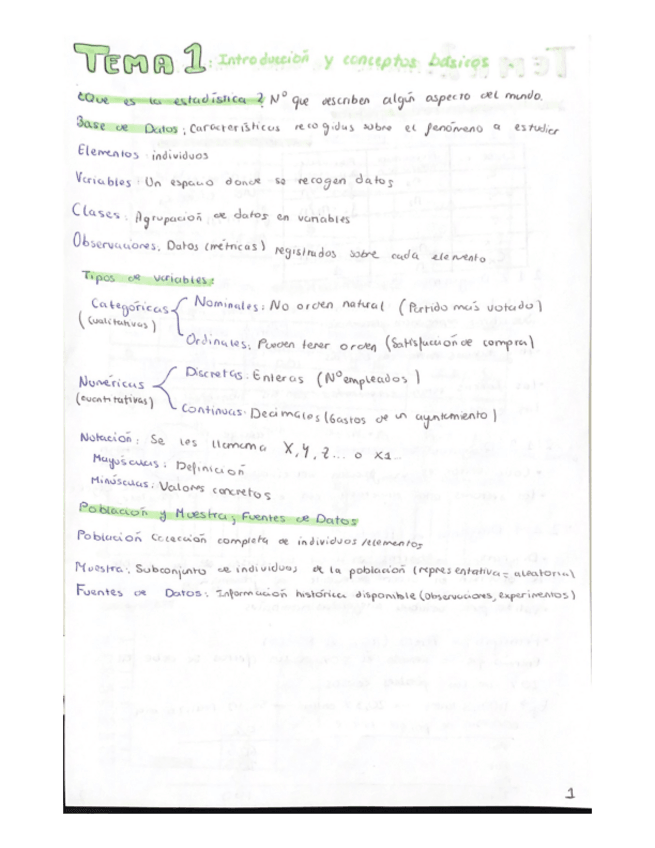 TEMA 1: Introducción y conceptos básicos.
¿Que es la estadística? Nº que describen algún aspecto del mundo.
Base de Datos: Características recogidas sobre el fenómeno a estudiar
Elementos: individuos
Variables: Un espacio donde se recogen datos
Clases: Agrupación de datos en variables
Observaciones: Datos (métricas) registrados sobre cada elemento
Tipos de variables:
Categóricas (cualitativas)
Nominales: No orden natural (Partido más votado)
Ordinales: Pueden tener orden (Satisfacción de compra)
Numéricas (cuantitativas)
Discretas: Enteras (Nº empleados)
Continuas: Decimales (Gastos de un ayuntamiento)
Notación: Se les llamama X, Y, Z... o X1...
Mayúsculas: Definición
Minúsculas: Valores concretos
Población y Muestra; Fuentes de Datos
Población Colección completa de individuos/elementos
Muestra: Subconjunto de individuos de la población (representativa = aleatoria)
Fuentes de Datos: Información histórica disponible (observaciones, experimentos)
1